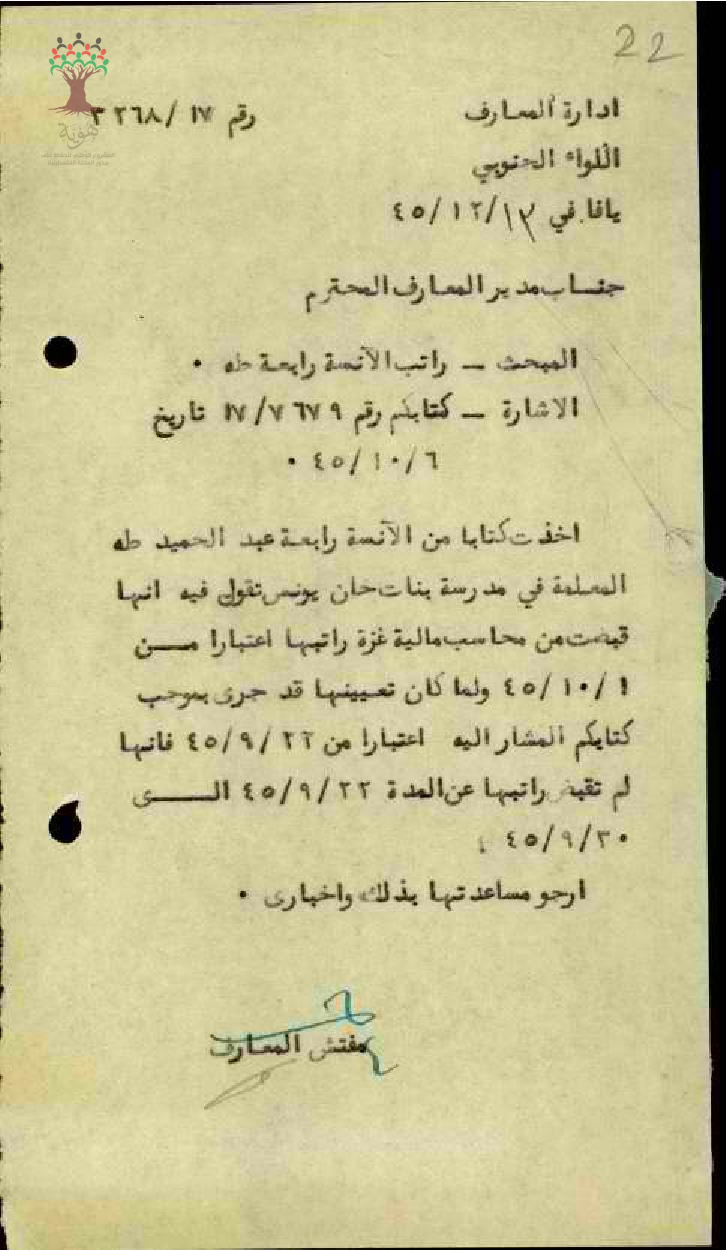 22
ادارة المعارف رقم ١٧/ ٣٢٦٨
اللواء الجنوبي
يافا في ١٣/ ١٢/ ٤٥
جناب مدير المعارف المحترم
المبحث – راتب الآنسة رابعة طه ٠
الاشارة – كتابكم رقم ١٧/٧٦٧٩ تاريخ
٦/ ١٠/ ٤٥ ٠
اخذت كتابا من الآنسة رابعة عبد الحميد طه
المعلمة في مدرسة بنات خان يونس تقول فيه انها
قبضت من محاسب مالية غزة راتبها اعتبارا مــن
١/ ١٠/ ٤٥ ولما كان تعيينها قد جرى بموجب
كتابكم المشار اليه اعتبارا من ٢٢/ ٩/ ٤٥ فانها
لم تقبض راتبها عن المدة ٢٢/ ٩/ ٤٥ الــــى
٣٠/ ٩/ ٤٥
ارجو مساعدتها بذلك واخبارى ٠
مفتش المعارف